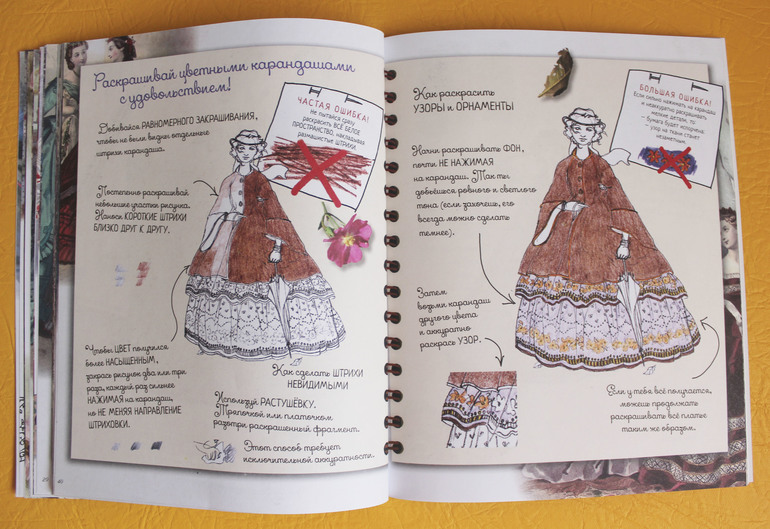 Раскрашивай цветными карандашами
с удовольствием!
ЧАСТАЯ ОШИБКА!
Не пытайся сразу
раскрасить ВСЁ БЕЛОЕ
ПРОСТРАНСТВО, накладывая
размашистые ШТРИХИ.
Добивайся РАВНОМЕРНОГО ЗАКРАШИВАНИЯ,
чтобы не были видны отдельные
штрихи карандаша.
Постепенно раскрашивай
небольшие участки рисунка.
Наноси КОРОТКИЕ ШТРИХИ
БЛИЗКО ДРУГ К ДРУГУ.
Чтобы ЦВЕТ получился
более НАСЫЩЕННЫМ,
закрась рисунок два или три
раза, каждый раз сильнее
НАЖИМАЯ на карандаш,
но НЕ МЕНЯЯ НАПРАВЛЕНИЯ
ШТРИХОВКИ.
Как сделать ШТРИХИ
НЕВИДИМЫМИ
Используй РАСТУШЁВКУ.
Тряпочкой или платочком
разотри раскрашенный фрагмент.
Этот способ требует
исключительной аккуратности.
Как раскрасить
УЗОРЫ и ОРНАМЕНТЫ
БОЛЬШАЯ ОШИБКА!
Если сильно нажимать на карандаш
и неаккуратно раскрашивать
мелкие детали, то:
– бумага будет испорчена;
– узор на ткани станет
незаметным.
Начни раскрашивать ФОН,
почти НЕ НАЖИМАЯ
на карандаш. Так ты
добьёшься ровного и светлого
тона (если захочешь, его
всегда можно сделать
темнее).
Затем
возьми карандаш
другого цвета
и аккуратно
раскрась УЗОР.
Если у тебя всё получается,
можешь продолжать
раскрашивать всё платье
таким же образом.